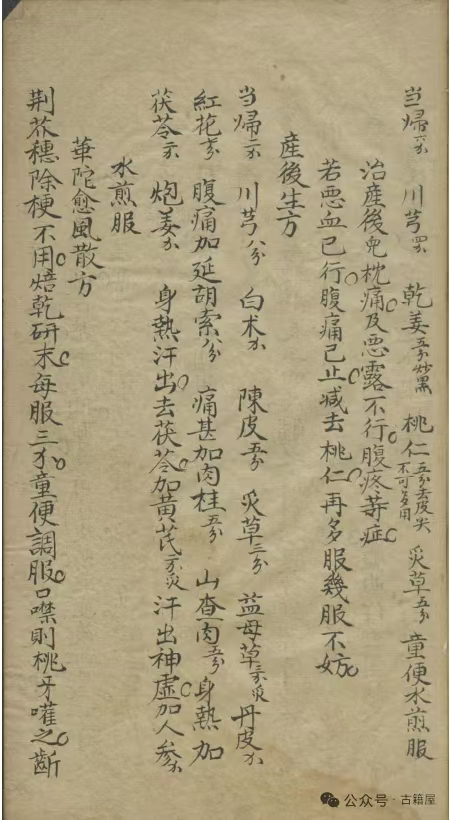 当歸六不 川芎四不 乾姜五分炒黑 桃仁五分去皮尖不可多用 炙草五分 童便水煎服
治産後皃枕痛及悪露不行腹疼等症
若悪血已行腹痛已止減去桃仁再多服幾服不妨
産後生方
当歸二不 川芎八分 白朮不 陳皮五分 炙草三分 益母草二不炙 丹皮不
紅花五分 腹痛加延胡索八分 痛甚加肉桂五分 山查肉五分 身熱加
茯苓二不 炮姜不 身熱汗出去茯苓加黃芪二不炙 汗出神虛加人參不
水煎服
華陀愈風散方
荆芥穗除梗不用焙乾研末每服三不童便調服口噤則桃牙嚾之齗
公众号·古籍屋